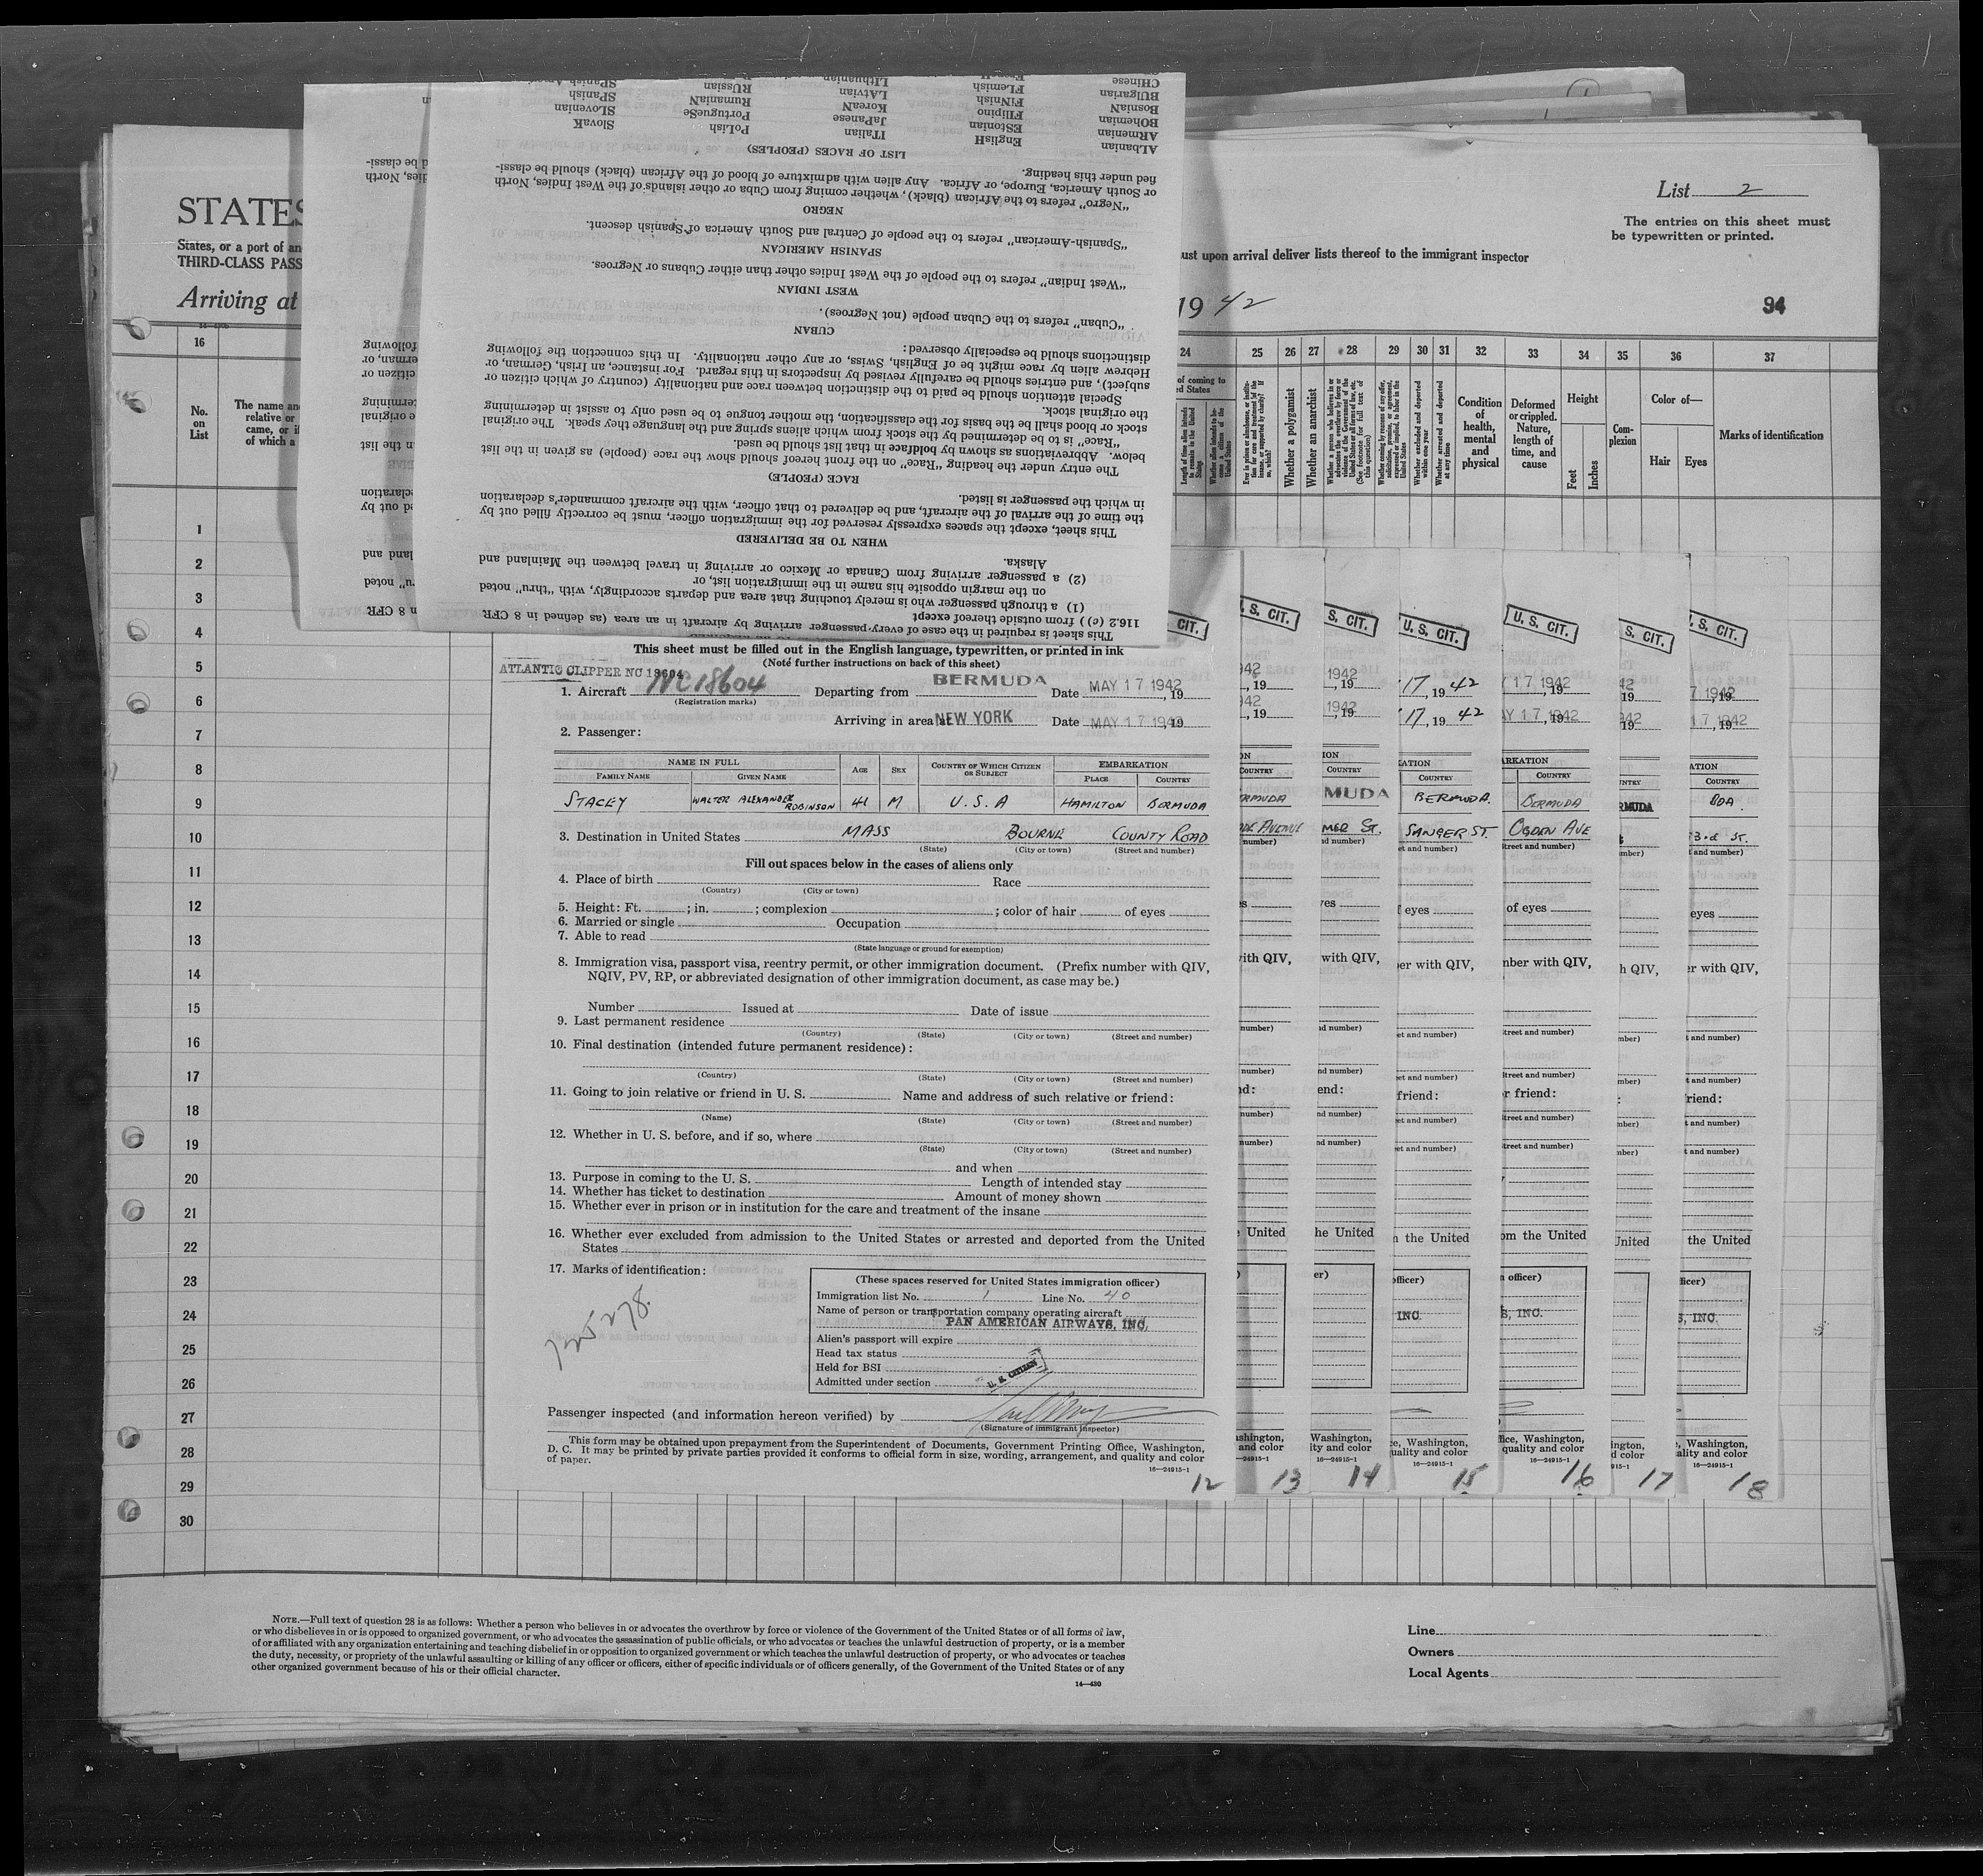 List 2
The entries on this sheet must
be typewritten or printed.
STATES
States, or a port of an
THIRD-CLASS PASS
ust upon arrival deliver lists thereof to the immigrant inspector
Arriving at
19 42
94
16
24 25 26 27 28 29 30 31 32 33 34 35 36 37
No.
on
List
The name an
relative or
came, or if
of which a
of coming to
ed States
Length of time alien intends
to remain in the United
States
Whether a polygamist
Whether an anarchist
Whether excluded and deported
within one year
Whether arrested and deported
at any time
Condition
of
health,
mental
and
physical
Deformed
or crippled.
Nature,
length of
time, and
cause
Height
Feet
Inches
Com-
plexion
Color of—
Hair
Eyes
Marks of identification
1
2
3
4
5
6
7
8
9
10
11
12
13
14
15
16
17
18
19
20
21
22
23
24
25
26
27
28
29
30
This sheet is required in the case of every passenger arriving by aircraft in an area (as defined in 8 CFR
116.2 (c)) from outside thereof except
(1) a through passenger who is merely touching that area and departs accordingly, with "thru" noted
on the margin opposite his name in the immigration list, or
(2) a passenger arriving from Canada or Mexico or arriving in travel between the Mainland and
Alaska.
WHEN TO BE DELIVERED
This sheet, except the spaces expressly reserved for the immigration officer, must be correctly filled out by
the time of the arrival of the aircraft, and be delivered to that officer, with the aircraft commander's declaration
in which the passenger is listed.
RACE (PEOPLE)
The entry under the heading "Race" on the front hereof should show the race (people) as given in the list
below. Abbreviations as shown by boldface in that list should be used.
"Race" is to be determined by the stock from which aliens spring and the language they speak. The original
stock or blood shall be the basis for the classification, the mother tongue to be used only to assist in determining
the original stock.
Special attention should be paid to the distinction between race and nationality (country of which citizen or
subject), and entries should be carefully revised by inspectors in this regard. For instance, an Irish, German, or
Hebrew alien by race might be of English, Swiss, or any other nationality. In this connection the following
distinctions should be especially observed:
CUBAN
"Cuban" refers to the Cuban people (not Negroes).
WEST INDIAN
"West Indian" refers to the people of the West Indies other than either Cubans or Negroes.
SPANISH AMERICAN
"Spanish-American" refers to the people of Central and South America of Spanish descent.
NEGRO
"Negro" refers to the African (black), whether coming from Cuba or other islands of the West Indies, North
or South America, Europe, or Africa. Any alien with admixture of blood of the African (black) should be classi-
fied under this heading.
LIST OF RACES (PEOPLES)
ALbanian English ITalian PoLish SlovaK
ARmenian EStonian JaPanese PortugueSe SLovenian
BOhemian FIlipino KoreaN RumaniaN SPanish
BosniaN FiNnish LAtvian RUssian
BUlgarian FLemish
CHinese
This sheet must be filled out in the English language, typewritten, or printed in ink
(Note further instructions on back of this sheet)
ATLANTIC CLIPPER NC 18604
1. Aircraft NC18604 Departing from BERMUDA Date MAY 17 1942, 19
(Registration marks)
Arriving in area at NEW YORK Date MAY 17 1942, 19
2. Passenger:
NAME IN FULL AGE SEX COUNTRY OF WHICH CITIZEN OR SUBJECT EMBARKATION
FAMILY NAME GIVEN NAME PLACE COUNTRY
STACEY WALTER ALEXANDER ROBINSON 41 M U.S.A HAMILTON BERMUDA
3. Destination in United States MASS BOURNE COUNTY ROAD
(State) (City or town) (Street and number)
Fill out spaces below in the cases of aliens only
4. Place of birth Race
(Country) (City or town)
5. Height: Ft. ; in. ; complexion ; color of hair of eyes
6. Married or single Occupation
7. Able to read
(State language or ground for exemption)
8. Immigration visa, passport visa, reentry permit, or other immigration document. (Prefix number with QIV,
NQIV, PV, RP, or abbreviated designation of other immigration document, as case may be.)
Number Issued at Date of issue
9. Last permanent residence
(Country) (State) (City or town) (Street and number)
10. Final destination (intended future permanent residence):
(Country) (State) (City or town) (Street and number)
11. Going to join relative or friend in U. S. Name and address of such relative or friend:
(Name) (State) (City or town) (Street and number)
12. Whether in U. S. before, and if so, where
(State) (City or town) (Street and number)
and when
13. Purpose in coming to the U. S. Length of intended stay
14. Whether has ticket to destination Amount of money shown
15. Whether ever in prison or in institution for the care and treatment of the insane
16. Whether ever excluded from admission to the United States or arrested and deported from the United
States
17. Marks of identification:
(These spaces reserved for United States immigration officer)
Immigration list No. 1 Line No. 40
Name of person or transportation company operating aircraft
PAN AMERICAN AIRWAYS, INC.
Alien's passport will expire
Head tax status
Held for BSI
Admitted under section U. S. CITIZEN
Passenger inspected (and information hereon verified) by
(Signature of immigrant inspector)
This form may be obtained upon prepayment from the Superintendent of Documents, Government Printing Office, Washington,
D. C. It may be printed by private parties provided it conforms to official form in size, wording, arrangement, and quality and color
of paper.
16—24915-1
12 13 14 15 16 17 18
CIT. U. S. CIT. S. CIT. U. S. CIT. U. S. CIT. S. CIT. U. S. CIT.
17, 19 42
17, 19 42
MUDA BERMUDA. BERMUDA RMUDA BDA.
SANGER ST. OGDEN AVE 3rd St.
NOTE.—Full text of question 28 is as follows: Whether a person who believes in or advocates the overthrow by force or violence of the Government of the United States or of all forms of law,
or who disbelieves in or is opposed to organized government, or who advocates the assassination of public officials, or who advocates or teaches the unlawful destruction of property, or is a member
of or affiliated with any organization entertaining and teaching disbelief in or opposition to organized government or which teaches the unlawful destruction of property, or who advocates or teaches
the duty, necessity, or propriety of the unlawful assaulting or killing of any officer or officers, either of specific individuals or of officers generally, of the Government of the United States or of any
other organized government because of his or their official character.
14—430
Line
Owners
Local Agents